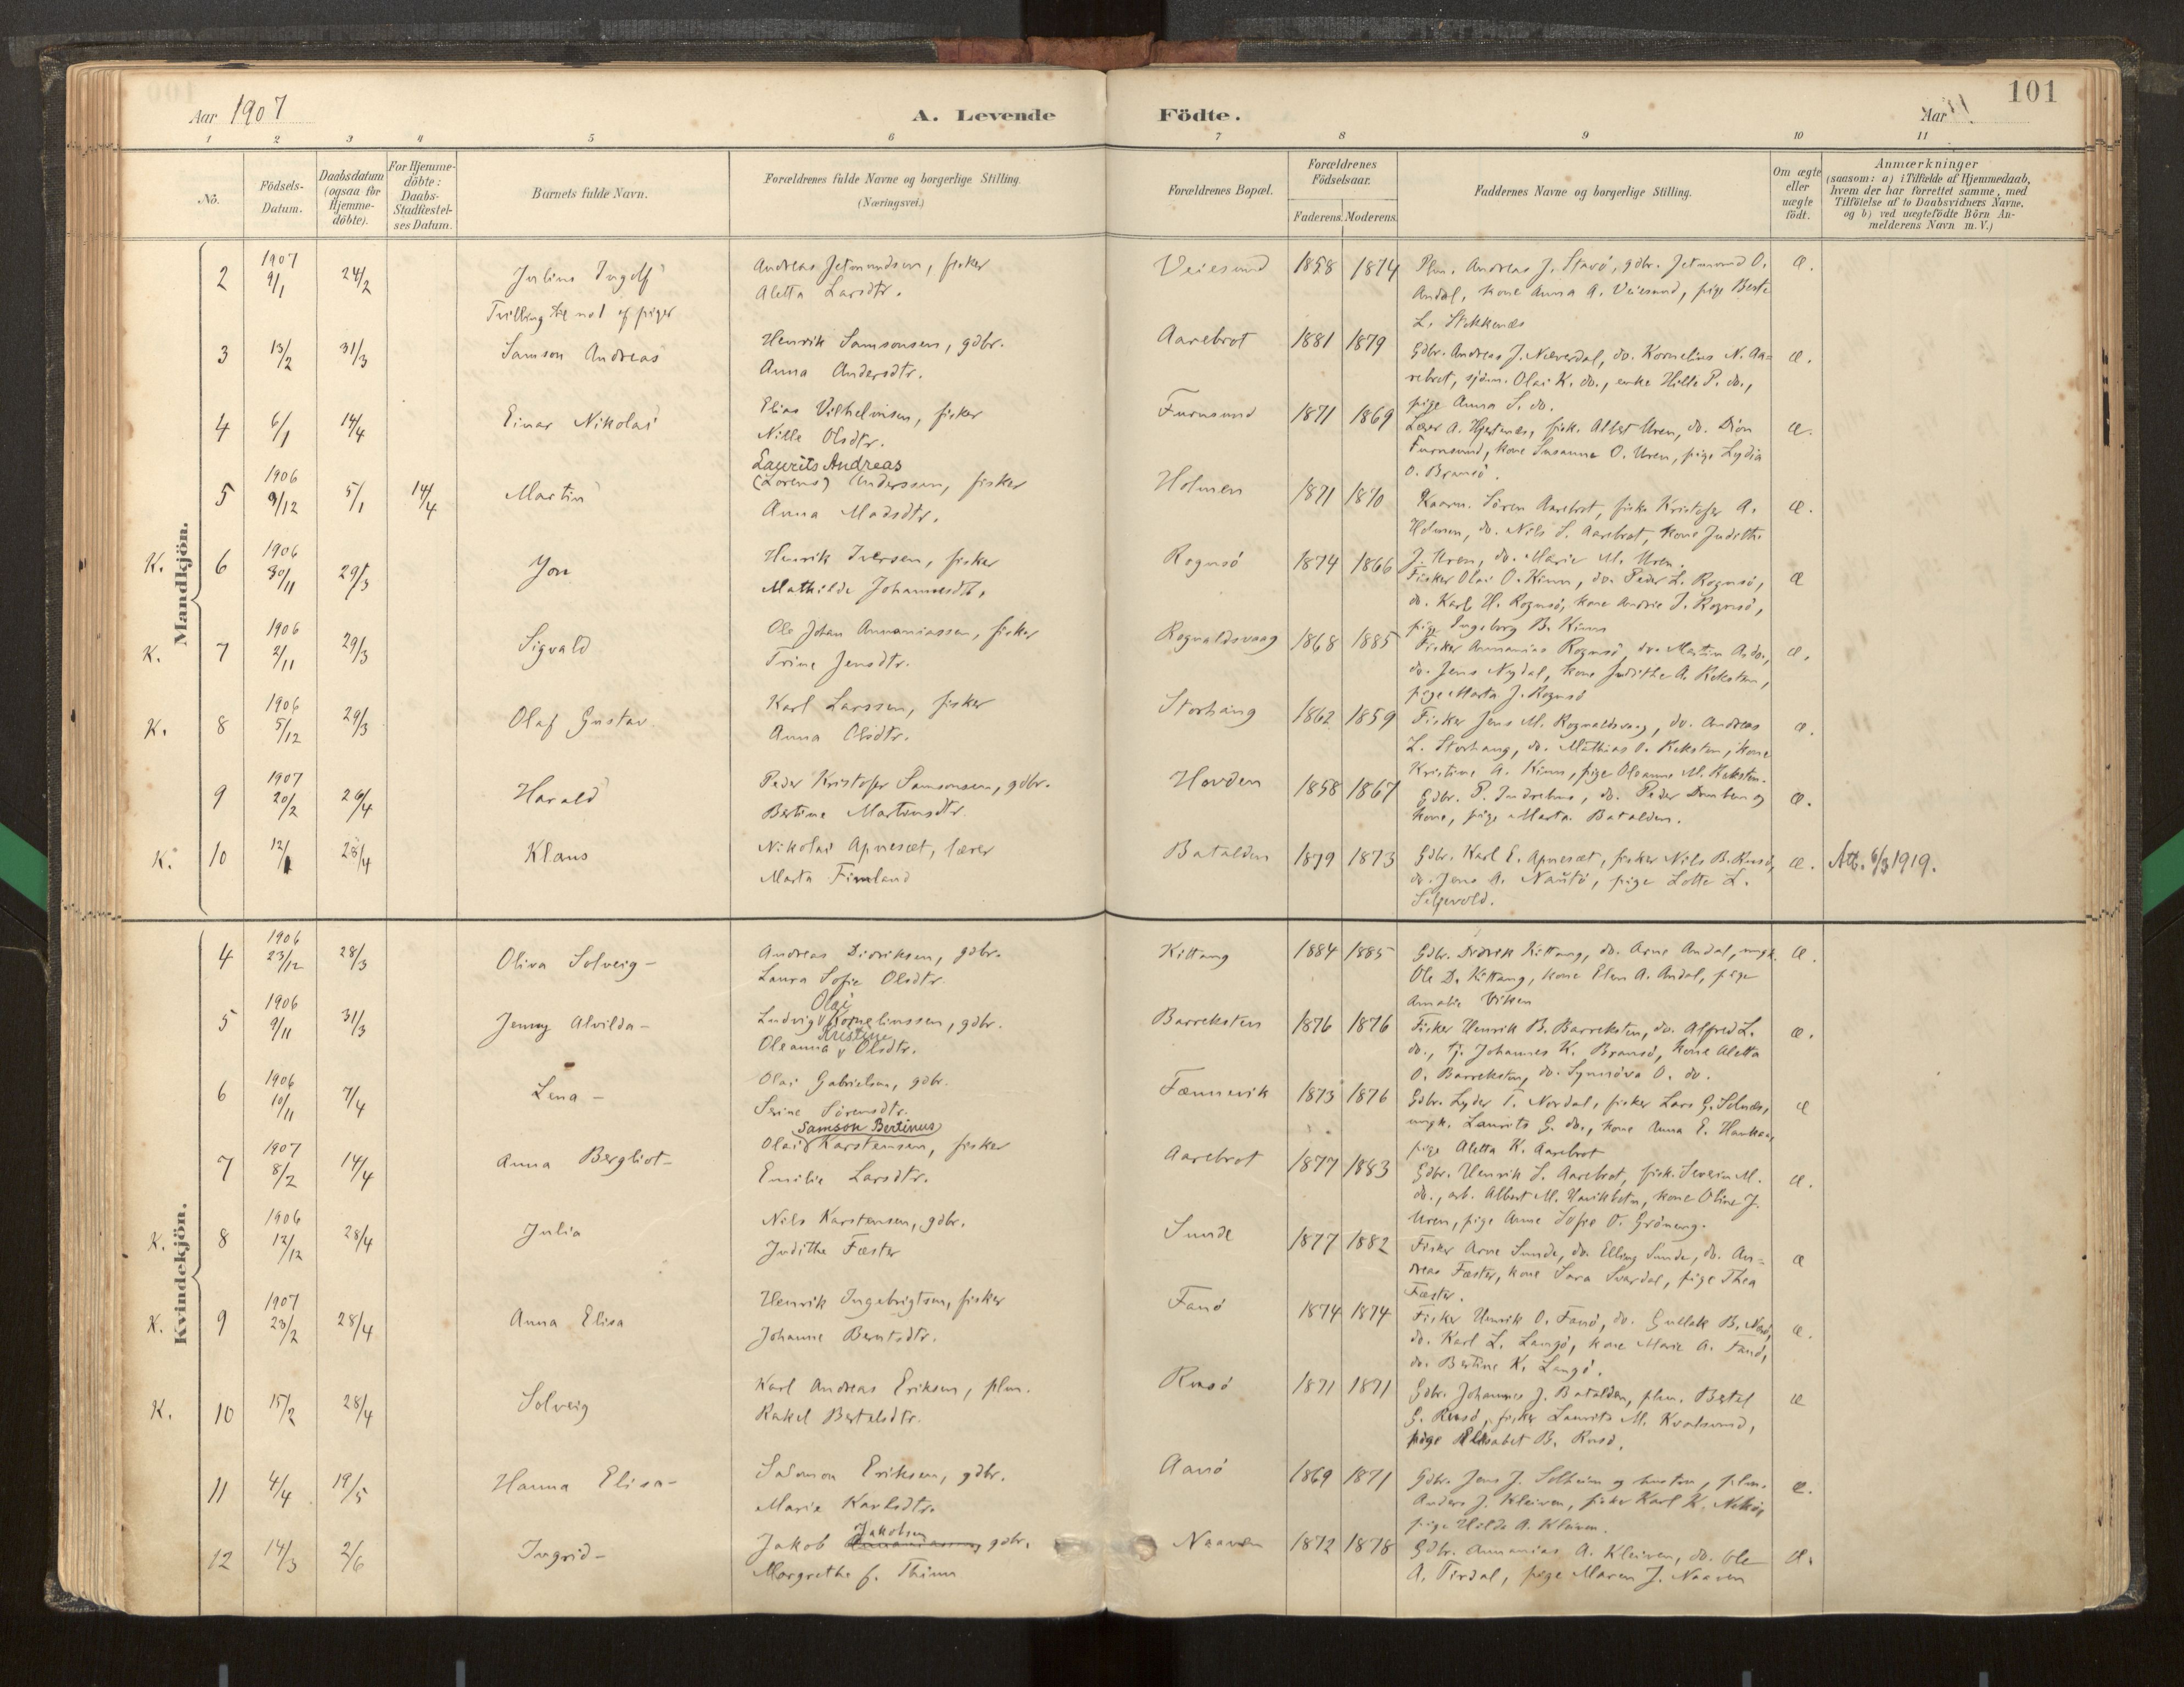 101
Aar 1907
A. Levende Födte.
Aar
1 2 3 4 5 6 7 8 9 10 11
No.
Födsels-Datum.
Daabsdatum (ogsaa for Hjemme-döbte).
For Hjemme-döbte: Daabs-Stadfæstel-ses Datum.
Barnets fulde Navn.
Forældrenes fulde Navne og borgerlige Stilling. (Næringsvei.)
Forældrenes Bopæl.
Forældrenes Födselsaar.
Faderens. Moderens.
Faddernes Navne og borgerlige Stilling.
Om ægte eller uægte födt.
Anmærkninger
(saasom: a) i Tilfælde af Hjemmedaab,
hvem der har forrettet samme, med
Tilföielse af to Daabsvidners Navne.
og b) ved uægtefödte Börn An-
melderens Navn m. V.)
Mandkjön.
2 1907 9/1 24/2 Julius Ingolf Andreas Jetmundsen, fisker Veiesund 1858 1874 Plm. Andreas J. Stavö, gdbr. Jetmund O. æ.
Aletta Larsdtr. Andal, kone Anna A. Veiesund, pige Berte
Tvilling no 1 af piger L. Stokkenæs
3 13/2 31/3 Samson Andreas Henrik Samsonsen, gdbr. Aarebrot 1881 1879 Gdbr. Andreas J. Næverdal, do. Kornelius N. Aa= æ.
Anna Andersdtr. rebrot, sjöm. Olai K. do., enke Hilte P. do.,
pige Anna S. do.
4 6/1 14/4 Einar Nikolai Elias Vilhelmsen, fisker Furusund 1871 1869 Lærer A. Hjertenæs, fisk. Albert Uren, do. Dion æ.
Nille Olsdtr. Furusund, kone Susanne O. Uren, pige Lydia
O. Bransö.
5 1906 9/12 5/1 14/4 Martin Laurits Andreas (Lorens) Anderssen, fisker Holmen 1871 1870 Kaarm. Sören Aarebrot, fisker Kristofer A. æ.
Anna Madsdtr. Holmen, do. Nils S. Aarebrot, kone Judithe
J. Uren, do. Marie M. Uren.
K. 6 1906 30/11 29/3 Jon Henrik Iversen, fisker Rognsö 1874 1866 Fisker Olai O. Kinn, do. Peder L. Rognsö, æ
Mathilde Johannesdtr. do. Karl H. Rognsö, kone Andrie J. Rognsö,
pige Ingeborg B. Kinn
K. 7 1906 2/11 29/3 Sigvald Ole Johan Annaniassen, fisker Rognaldsvaag 1868 1885 Fisker Annanias Rognsö, do. Martin A. do., æ.
Trine Jensdtr. do. Jens Nydal, kone Judithe A. Reksten,
pige Marta J. Rognsö
K. 8 1906 5/12 29/3 Olaf Gustav Karl Larssen, fisker Storhaug 1862 1859 Fisker Jens M. Rognaldsvaag, do. Andreas æ.
Anna Olsdtr. L. Storhaug, do. Mathias O. Reksten, kone
Kristine A. Kinn, pige Oleanne M. Reksten.
9 1907 20/2 26/4 Harald Peder Kristofer Samsonsen, gdbr. Hovden 1858 1867 Gdbr. P. Indrehus, do. Peder Domben og æ.
Bertine Martinusdtr kone, pige Marta Batalden.
K. 10 12/1 28/4 Klaus Nikolai Apnesæt, lærer Batalden 1879 1873 Gdbr. Karl E. Apnesæt, fisker Nils B. Rusö, æ. Att. 6/3 1919.
Marta Fimland do. Jens A. Nautö, pige Lotte L.
Seljevold.
Kvindekjön.
4 1906 23/12 28/3 Oliva Solveig - Andreas Didriksen, gdbr. Kittang 1884 1885 Gdbr. Didrik Kittang, do. Arne Andal, ungk. æ.
Laura Sofie Olsdtr. Ole D. Kittang, kone Elen A. Andal, pige
Amalie Viksen
5 1906 9/11 31/3 Jenny Alvilda - Ludvig Olai Korneliussen, gdbr. Barreksten 1876 1876 Fisker Henrik B. Barreksten, do. Alfred L. æ.
Oleanna Kristine Olsdtr. do., tj. Johannes K. Bransö, kone Aletta
O. Barreksten, do. Synnöva O. do.
6 1906 10/11 7/4 Lena - Olai Gabrielsen, gdbr. Fænnevik 1873 1876 Gdbr. Lyder T. Nordal, fisker Lars G. Solnæs, æ
Serine Sörensdtr. ungk. Laurits G. do., kone Anna E. Haukaa,
pige Aletta K. Aarebrot
7 1907 8/2 14/4 Anna Bergliot - Olai Samson Bertinus Karstensen, fisker Aarebrot 1877 1883 Gdbr. Henrik S. Aarebrot, fisk. Severin M. æ.
Emilie Larsdtr. do., arb. Albert M. Haviksbotn, kone Oline J.
Uren, pige Anne Sofie O. Gröneng.
K. 8 1906 12/12 28/4 Julia Nils Karstensen, gdbr. Sunde 1877 1882 Fisker Arne Sunde, do. Elling Sunde, do. An= æ
Judithe Fæster dreas Fæster, kone Sara Svardal, pige Thea
Fæster.
K. 9 1907 23/2 28/4 Anna Elisa Henrik Ingebrigtsen, fisker Fanö 1874 1874 Fisker Henrik O. Fanö, do. Gullak B. æ.
Johanne Berntsdtr. do. Karl L. Langö, kone Marie A. Fanö,
do. Bertine K. Langö.
K. 10 15/2 28/4 Solveig Karl Andreas Eriksen, plm. Rusö 1871 1871 Gdbr. Johannes J. Batalden, plm. Bertel æ
Rakel Bertelsdtr. G. Rusö, fisker Laurits M. Kvalsund,
pige Elisabet B. Rusö.
11 4/4 19/5 Hanna Elisa - Salomon Eriksen, gdbr. Aanö 1869 1871 Gdbr. Jens J. Solheim og hustru, plm. æ.
Marie Karlsdtr. Anders J. Kleiven, fisker Karl K.
pige Hilda A. Kleiven.
12 14/3 2/6 Ingrid - Jakob Jakobsen gdbr. Naaven 1872 1878 Gdbr. Annanias A. Kleiven, do. Ole æ.
Margrethe f. Thinn A. Tirdal, pige Maren J. Naaven